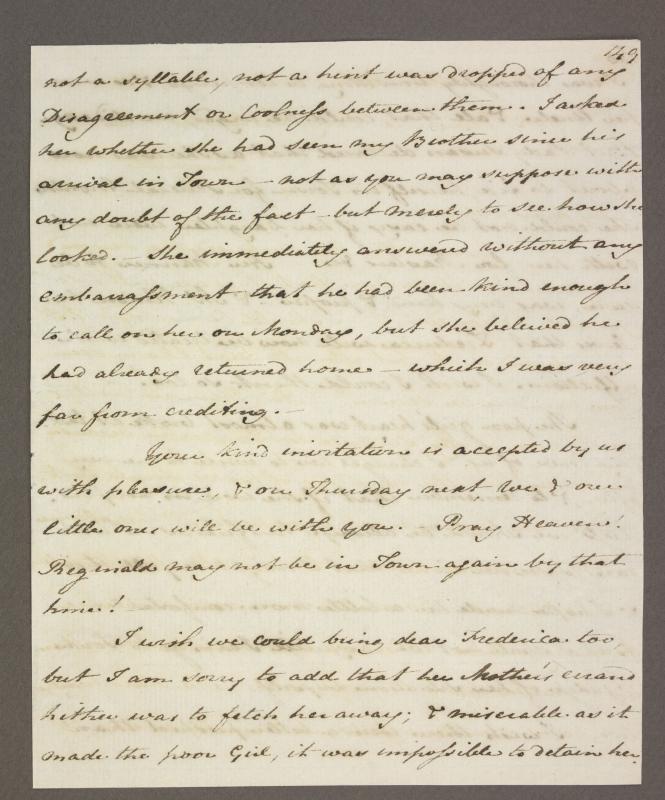 149
not a syllable, not a hint was dropped of any
Disagreement or Coolness between them. I asked
her whether she had seen my Brother since his
arrival in Town - not as you may suppose with
any doubt of the fact - but merely to see how she
looked. - She immediately answered without any
embarrassment that he had been kind enough
to call on her on Monday, but she beleived he
had already returned home - which I was very
far from crediting. -
Your kind invitation is accepted by us
with pleasure, & on Thursday next we & our
little ones will be with you. - Pray Heaven!
Reginald may not be in Town again by that
time!
I wish we could bring dear Frederica too,
but I am sorry to add that her Mother's errand
hither was to fetch her away; & miserable as it
made the poor Girl, it was impossible to detain her.